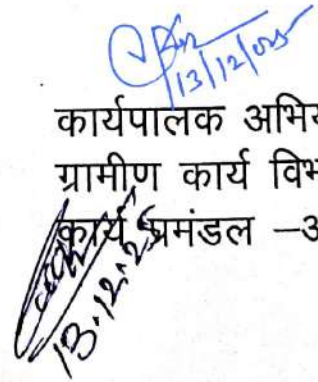 13/12/025
कार्यपालक अभिय
ग्रामीण कार्य विभ
कार्य प्रमंडल –अ
13.12.25